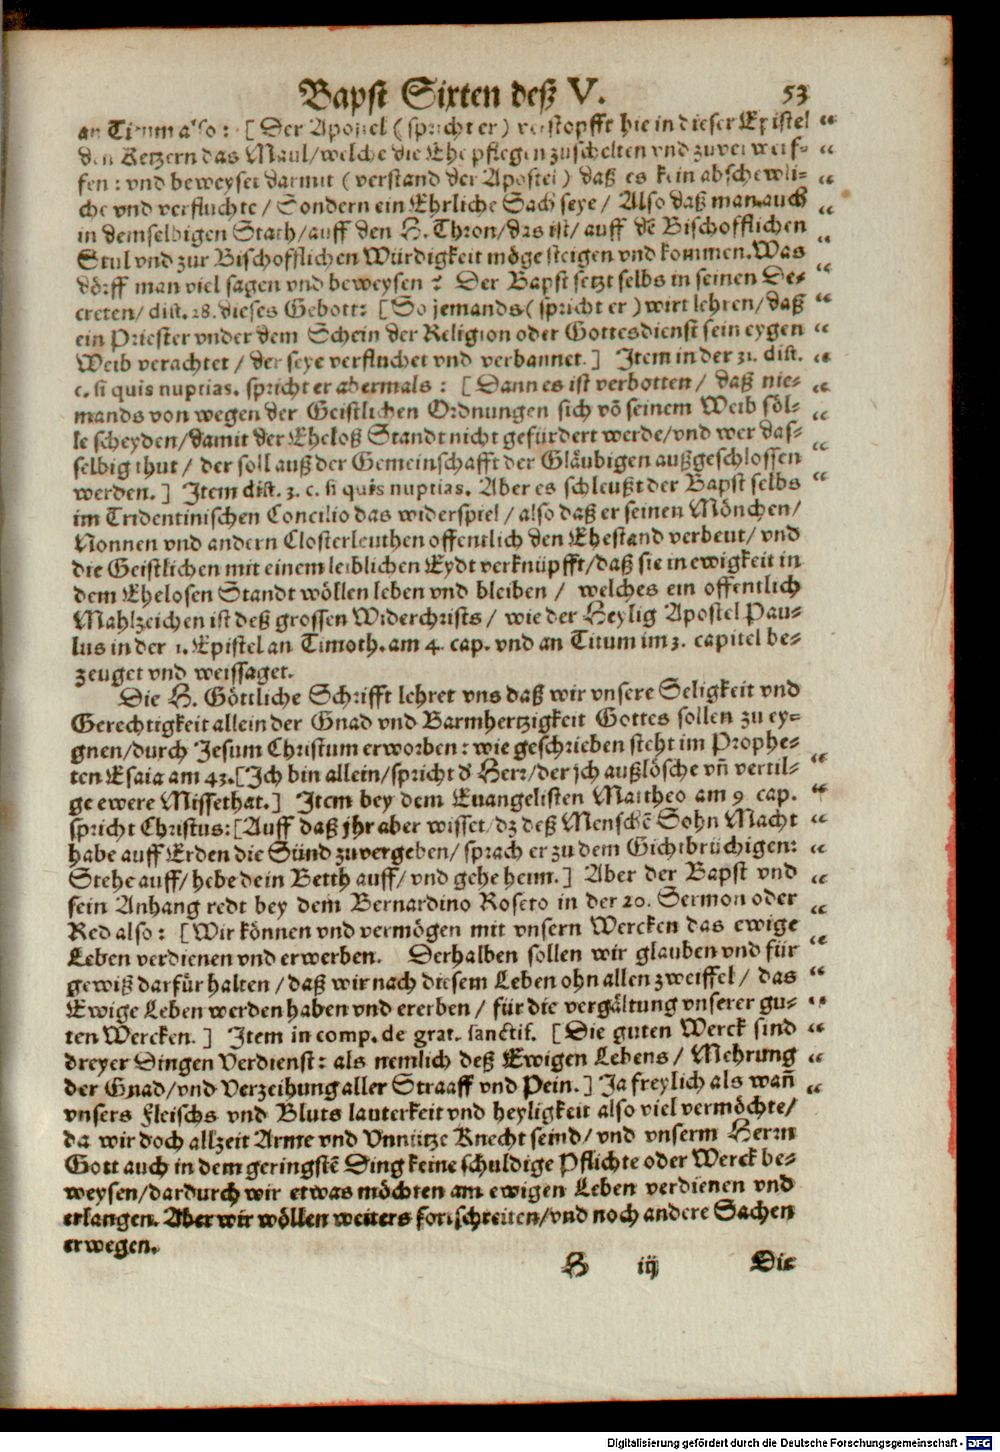 Bapst Sixten deß V. 53
an Titum also: [Der Apostel (spricht er) verstopfft hie in dieser Epistel “
den Ketzern das Maul/welche die Ehe pflegen zuschelten vnd zuverwerf- “
fen: vnd beweyset darmit (verstand der Apostel) daß es kein abschewli- “
che vnd verfluchte/ Sondern ein Ehrliche Sach seye/ Also daß man auch “
in demselbigen Stath/auff den H. Thron/das ist/ auff dẽ Bischofflichen “
Stul vnd zur Bischofflichen Würdigkeit möge steigen vnd kommen. Was “
dörff man viel sagen vnd beweysen? Der Bapst setzt selbs in seinen De- “
creten/ dist. 28. dieses Gebott: [So jemands (spricht er) wirt lehren/daß “
ein Priester vnder dem Schein der Religion oder Gottesdienst sein eygen “
Weib verachtet/ der seye verfluchet vnd verbannet.] Item in der 31. dist. “
c. si quis nuptias. spricht er abermals: [Dann es ist verbotten/ daß nie- “
mands von wegen der Geistlichen Ordnungen sich võ seinem Weib söl- “
le scheyden/damit der Eheloß Standt nicht gefürdert werde/vnd wer das- “
selbig thut/ der soll auß der Gemeinschafft der Gläubigen außgeschlossen “
werden.] Item dist. 3. c. si quis nuptias. Aber es schleußt der Bapst selbs
im Tridentinischen Concilio das widerspiel/also daß er seinen Mönchen/
Nonnen vnd andern Closterleuthen offentlich den Ehestand verbeut/ vnd
die Geistlichen mit einem leiblichen Eydt verknüpfft/daß sie in ewigkeit in
dem Ehelosen Standt wöllen leben vnd bleiben/ welches ein offentlich
Mahlzeichen ist deß grossen Widerchrists/ wie der Heylig Apostel Pau-
lus in der 1. Epistel an Timoth. am 4. cap. vnd an Titum im 3. capitel be-
zeuget vnd weissaget.
Die H. Göttliche Schrifft lehret vns daß wir vnsere Seligkeit vnd
Gerechtigkeit allein der Gnad vnd Barmhertzigkeit Gottes sollen zu ey-
gnen/durch Jesum Christum erworben: wie geschrieben steht im Prophe-
ten Esaia am 43. [Ich bin allein/spricht d̕ Herr/der jch außlösche vñ vertil- “
ge ewere Missethat.] Item bey dem Euangelisten Mattheo am 9 cap. “
spricht Christus: [Auff daß jhr aber wisset/dz deß Menschẽ Sohn Macht “
habe auff Erden die Sünd zuvergeben/ sprach er zu dem Gichtbrüchigen: “
Stehe auff/hebe dein Betth auff/vnd gehe heim.] Aber der Bapst vnd “
sein Anhang redt bey dem Bernardino Roseto in der 20. Sermon oder “
Red also: [Wir können vnd vermögen mit vnsern Wercken das ewige “
Leben verdienen vnd erwerben. Derhalben sollen wir glauben vnd für “
gewiß darfür halten/daß wir nach diesem Leben ohn allen zweiffel/ das “
Ewige Leben werden haben vnd ererben/ für die vergältung vnserer gu- “
ten Wercken.] Item in comp. de grat. sanctif. [Die guten Werck sind “
dreyer Dingen Verdienst: als nemlich deß Ewigen Lebens/ Mehrung “
der Gnad/vnd Verzeihung aller Straaff vnd Pein.] Ja freylich als wañ “
vnsers Fleischs vnd Bluts lauterkeit vnd heyligkeit also viel vermöchte/
da wir doch allzeit Arme vnd Vnnütze Knecht seind/ vnd vnserm Herrn
Gott auch in dem geringstẽ Ding keine schuldige Pflichte oder Werck be-
weysen/dardurch wir etwas möchten am ewigen Leben verdienen vnd
erlangen. Aber wir wöllen weiters fortschreiten/vnd noch andere Sachen
erwegen.
H iij Die
Digitalisierung gefördert durch die Deutsche Forschungsgemeinschaft - DFG